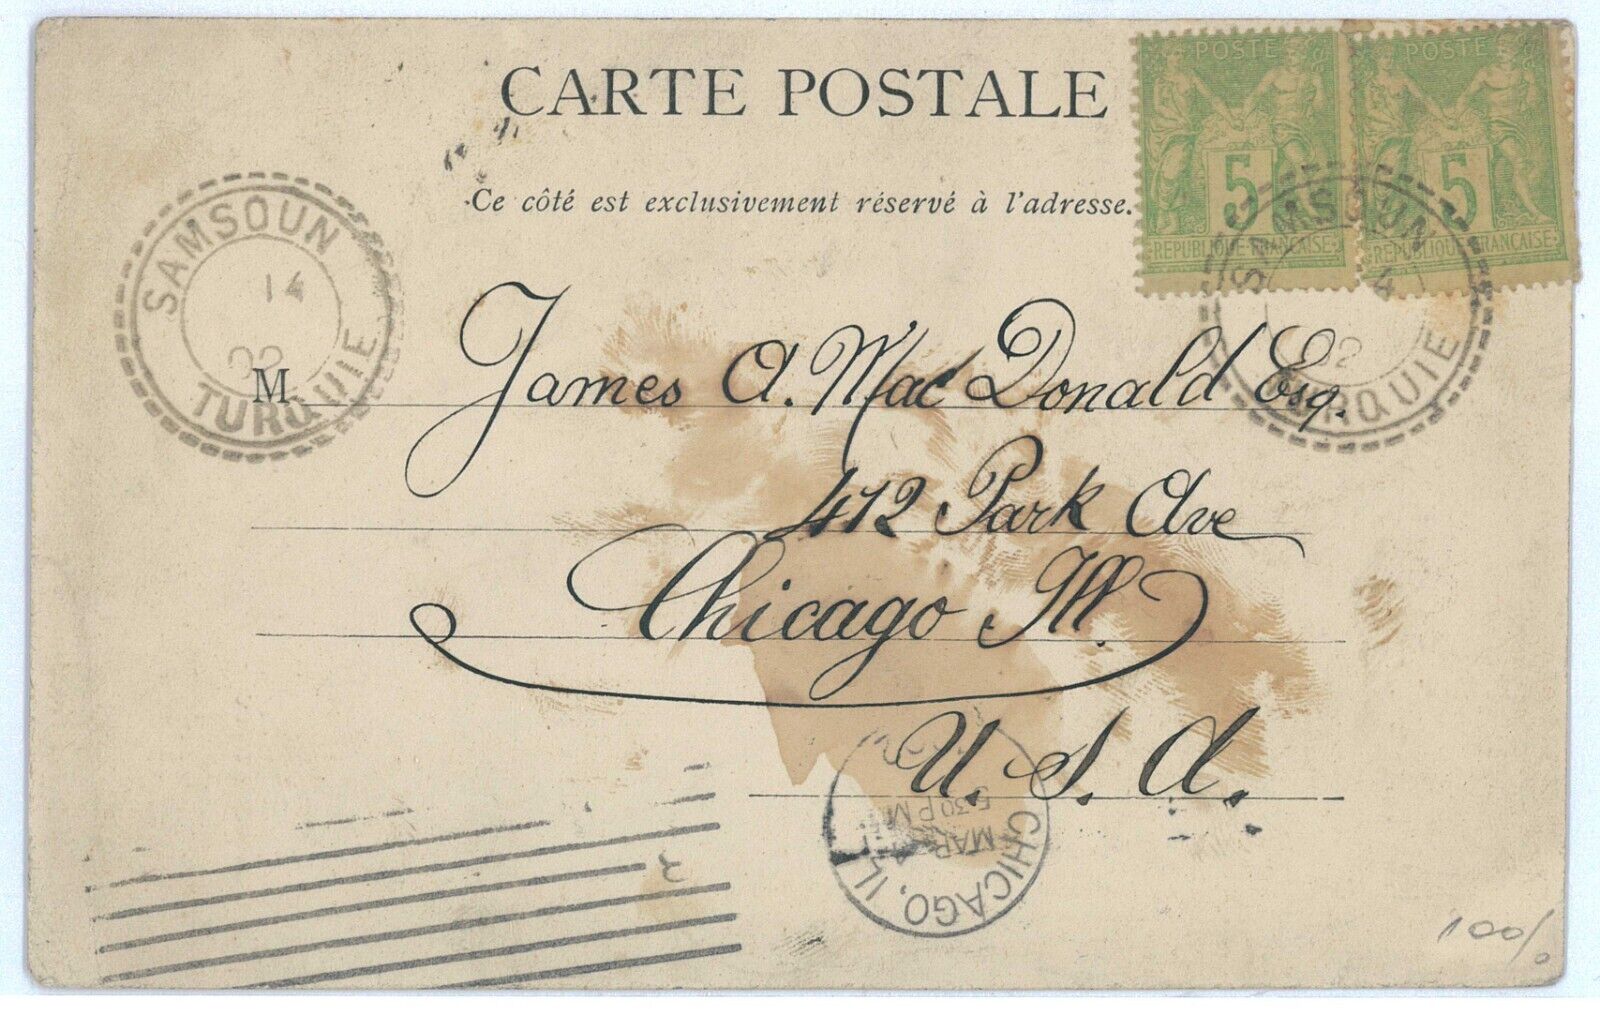 CARTE POSTALE
Ce côté est exclusivement réservé à l'adresse.
POSTE
5
REPUBLIQUE FRANÇAISE
POSTE
5
REPUBLIQUE FRANÇAISE
SAMSOUN
14
02
TURQUIE
SAMSOUN
4
02
TURQUIE
M. James A. MacDonald Esq.
412 Park Ave
Chicago Ill.
U. S. A.
CHICAGO, ILL.
MAR
5 30 PM
100/.